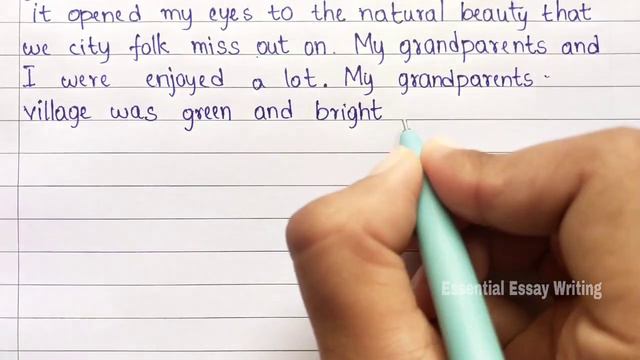 it opened my eyes to the natural beauty that
we city folk miss out on. My grandparents and
I were enjoyed a lot. My grandparents
village was green and bright
Essential Essay Writing